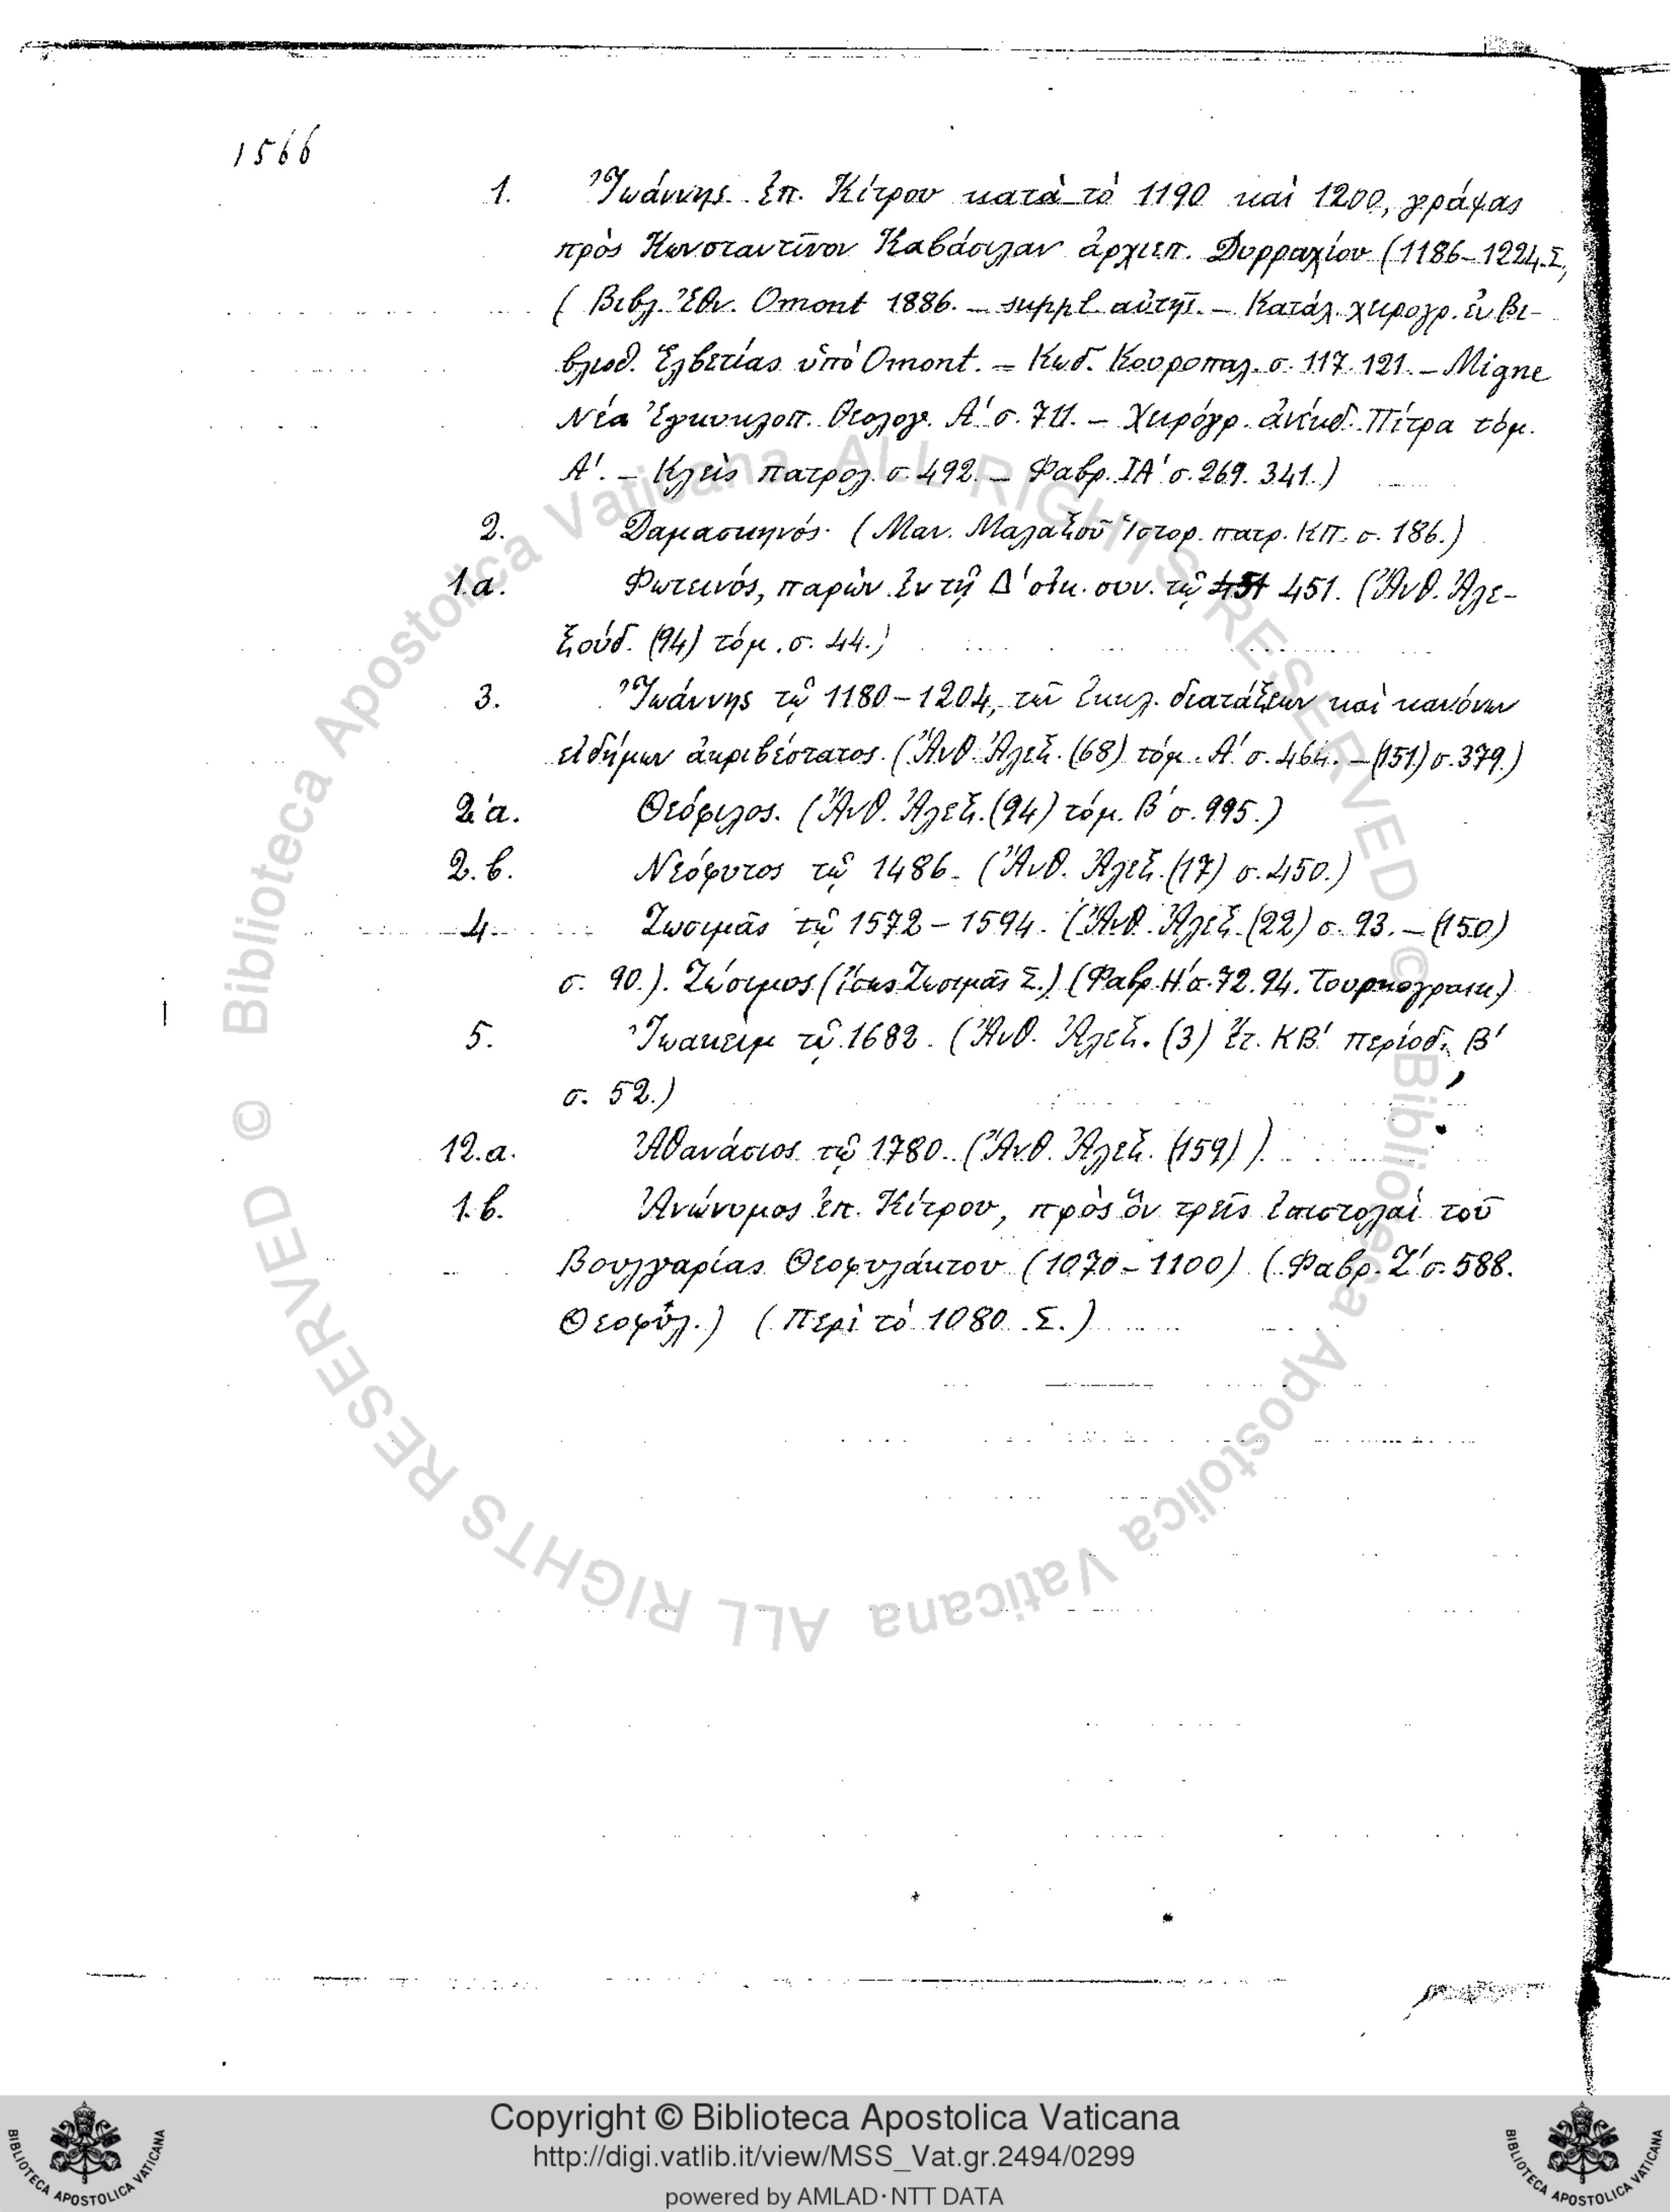 1566
1. Ἰωάννης ἐπ. Κίτρου κατὰ τὸ 1190 καὶ 1200, γράψας
πρὸς Κωνσταντῖνον Καβάσιλαν ἀρχιεπ. Δυρραχίου (1186-1224. Σ,
( Βιβλ. Ἐθν. Omont 1886. – suppl. αὐτῆς. – Κατάλ. χειρογρ. ἐν βι-
βλιοθ. Ἑλβετίας ὑπὸ Omont. – Κωδ. Κουροπαλ. σ. 117. 121. – Migne
Νέα Ἐγκυκλοπ. Θεολογ. Α' σ. 711. – Χειρόγρ. ἀνέκδ. Πίτρα τόμ.
Α'. – Κλεὶς πατρολ. σ. 492. – Φαβρ. ΙΑ' σ. 269. 341.)
2. Δαμασκηνός. (Μαν. Μαλαξοῦ Ἱστορ. πατρ. ΚΠ. σ. 186.)
1.α. Φωτεινός, παρὼν ἐν τῇ Δ' οἰκ. συν. τῷ 451 451. (Ἀνθ. Ἀλε-
ξούδ. (94) τόμ. σ. 44.)
3. Ἰωάννης τῷ 1180-1204, τῶν ἐκκλ. διατάξεων καὶ κανόνων
εἰδήμων ἀκριβέστατος. (Ἀνθ. Ἀλεξ. (68) τόμ. Α' σ. 464. – (151) σ. 379.)
2.α. Θεόφιλος. (Ἀνθ. Ἀλεξ. (94) τόμ. Β' σ. 995.)
2.β. Νεόφυτος τῷ 1486. (Ἀνθ. Ἀλεξ. (17) σ. 450.)
4. Ζωσιμᾶς τῷ 1572-1594. (Ἀνθ. Ἀλεξ. (22) σ. 93. – (150)
σ. 90.). Ζώσιμος (ἴσως Ζωσιμᾶς Σ.) (Φαβρ. Η' σ. 72. 94. Τουρκογραικ.)
5. Ἰωακεὶμ τῷ 1682. (Ἀνθ. Ἀλεξ. (3) ἔτ. ΚΒ' περίοδ. Β'
σ. 52.)
12.α. Ἀθανάσιος τῷ 1780. (Ἀνθ. Ἀλεξ. (159))
1.β. Ἀνώνυμος ἐπ. Κίτρου, πρὸς ὃν τρεῖς ἐπιστολαὶ τοῦ
Βουλγαρίας Θεοφυλάκτου (1070-1100) (Φαβρ. Ζ' σ. 588.
Θεοφύλ.) (περὶ τὸ 1080 Σ.)
© Biblioteca Apostolica Vaticana ALL RIGHTS RESERVED © Biblioteca Apostolica Vaticana ALL RIGHTS RESERVED
Copyright © Biblioteca Apostolica Vaticana
http://digi.vatlib.it/view/MSS_Vat.gr.2494/0299
powered by AMLAD·NTT DATA
BIBLIOTECA APOSTOLICA VATICANA
BIBLIOTECA APOSTOLICA VATICANA